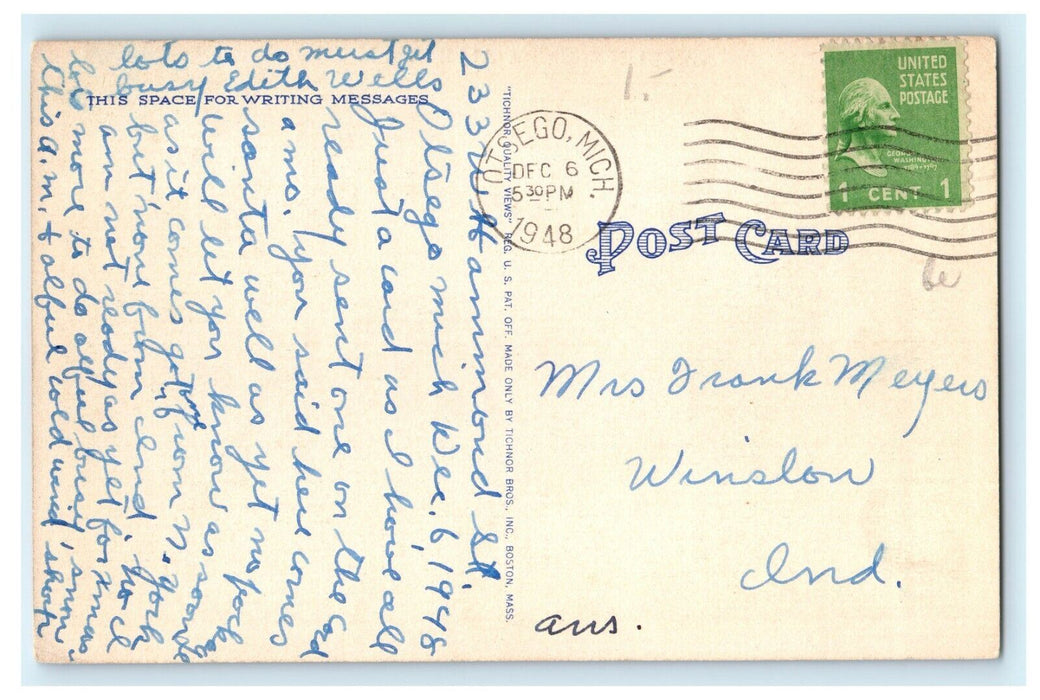 THIS SPACE FOR WRITING MESSAGES
233 W Hammond St.
Otsego Mich Dec. 6, 1948
Just a card as I have all
ready sent one on the cod
ans. you said here comes
santa well as yet no pack
will let you know as soon
as it comes got time from N. York
but none from Ind.
am not ready as yet for xmas
lots more to do alful busy, no
this a.m. & alful cold wind, snow
lots to do must get
busy Edith Wells
"TICHNOR QUALITY VIEWS" REG. U. S. PAT. OFF. MADE ONLY BY TICHNOR BROS., INC., BOSTON, MASS.
OTSEGO, MICH.
DEC 6
5 30 PM
1948
UNITED
STATES
POSTAGE
GEORGE
WASHINGTON
1789-1797
1 CENT 1
POST CARD
Mrs Frank Meyers
Winslow
Ind.
ans.